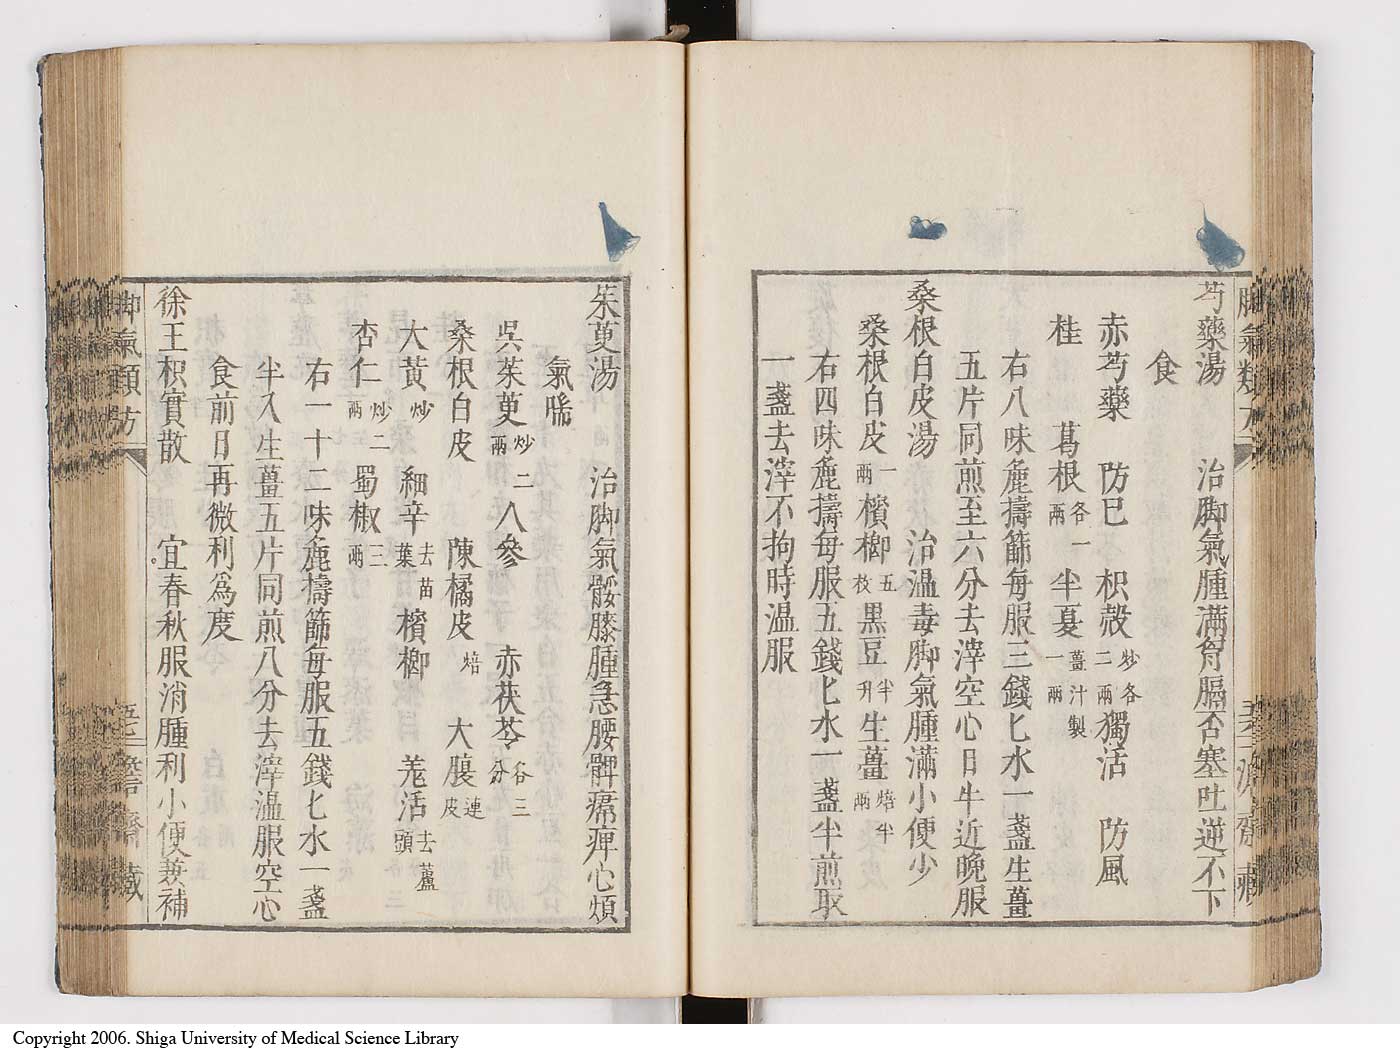 芍藥湯　治脚氣腫滿胷膈否塞吐逆不下
食
赤芍藥　防已　枳殻炒各二兩　獨活　防風
桂　葛根各一兩　半夏薑汁製一兩
右八味麄擣篩每服三錢匕水一盞生薑
五片同煎至六分去滓空心日午近晚服
桑根白皮湯　治温毒脚氣腫滿小便少
桑根白皮一兩　檳榔五枚　黒豆半升　生薑焙半兩
右四味麄擣每服五錢匕水一盞半煎取
一盞去滓不拘時温服
茱萸湯　治脚氣骽膝腫急腰髀㾽痺心煩
氣喘
吳茱萸炒二兩　人參　赤茯苓各三分
桑根白皮　陳橘皮焙　大腹連皮
大黃炒　細辛去苗葉　檳榔　羌活去蘆頭
杏仁炒二兩　蜀椒三兩
右一十二味麄擣篩每服五錢匕水一盞
半入生薑五片同煎八分去滓温服空心
食前日再微利爲度
徐王枳實散　宜春秋服消腫利小便兼補
脚氣類方
濟齋藏
Copyright 2006. Shiga University of Medical Science Library